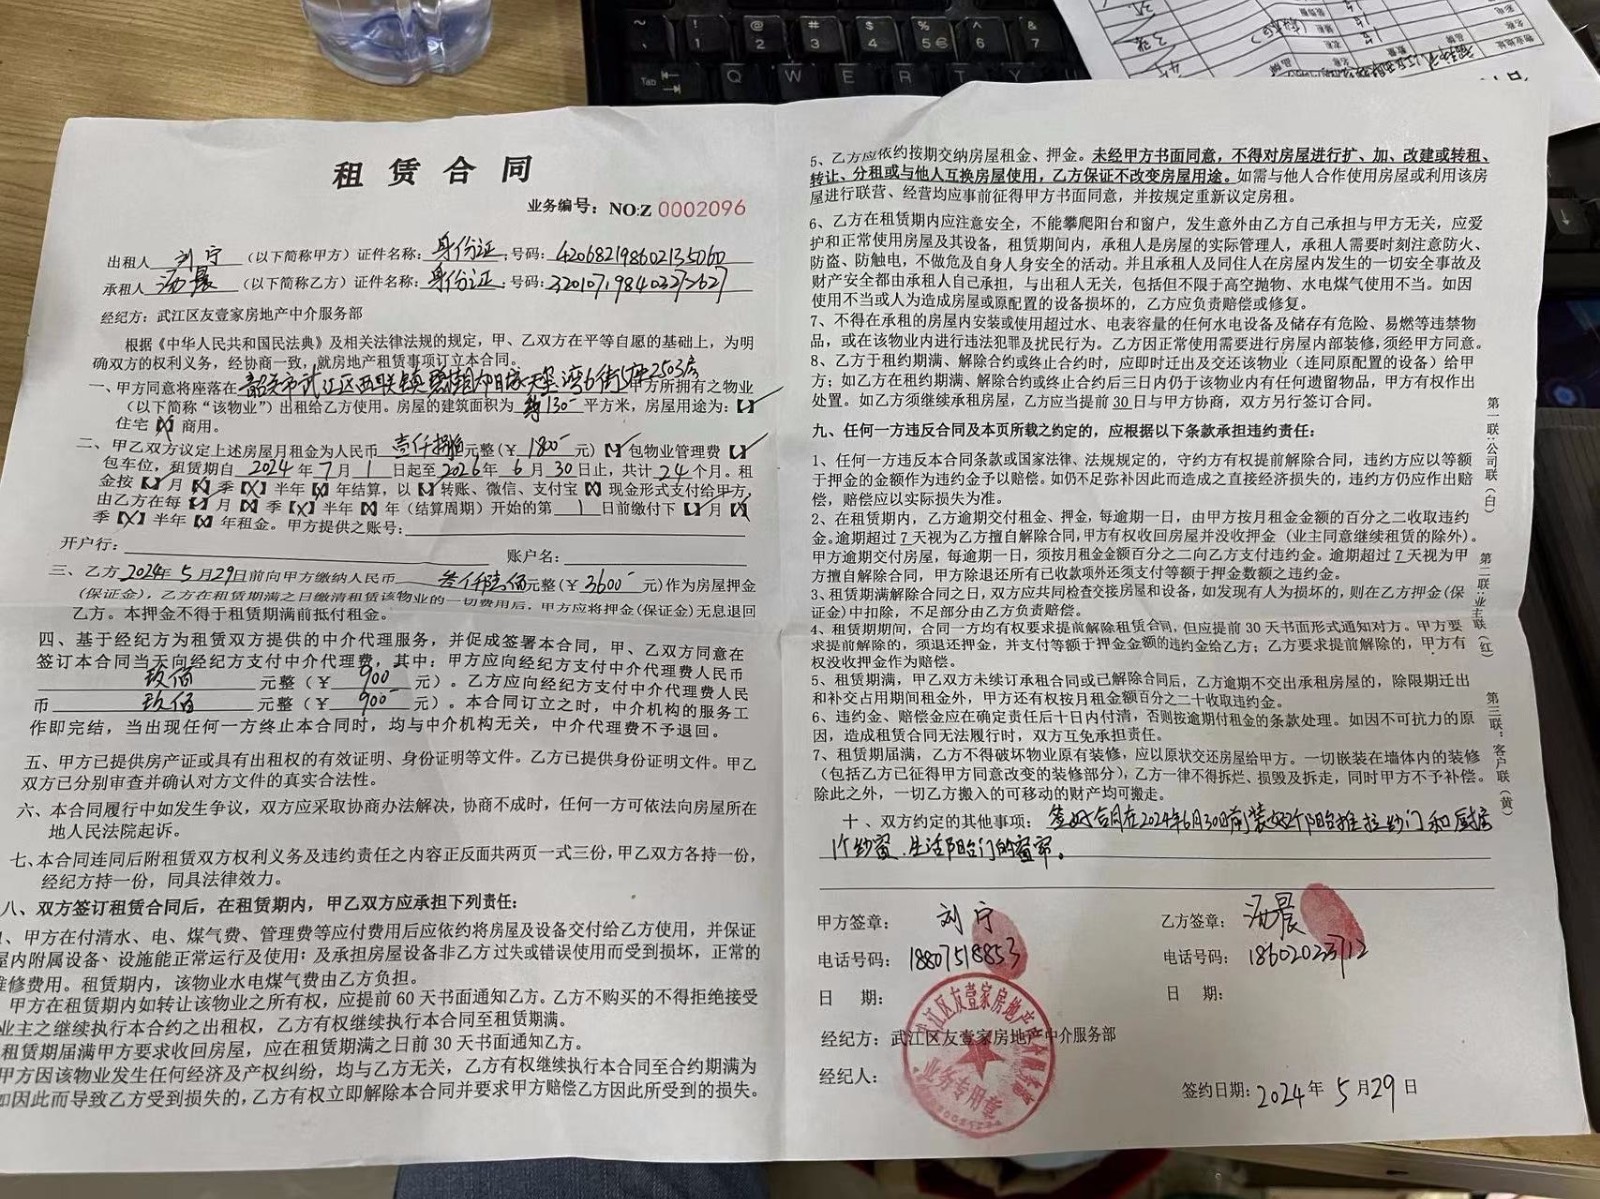 租赁合同
业务编号：NO:Z 0002096
出租人 刘宁 （以下简称甲方）证件名称：身份证；号码：420682198602135060
承租人 汤晨 （以下简称乙方）证件名称：身份证；号码：
经纪方：武江区友壹家房地产中介服务部
根据《中华人民共和国民法典》及相关法律法规的规定，甲、乙双方在平等自愿的基础上，为明
确双方的权利义务，经协商一致，就房地产租赁事项订立本合同。
一、甲方同意将座落在 韶关市武江区西联镇 天玺湾6街5座2503房 甲方所拥有之物业
（以下简称“该物业”）出租给乙方使用。房屋的建筑面积为 130 平方米，房屋用途为：【✓】
住宅【✗】商用。
二、甲乙双方议定上述房屋月租金为人民币 壹仟捌佰 元整（¥ 1800 元）【✓】包物业管理费【✓】
包车位，租赁期自 2024 年 7 月 1 日起至 2026 年 6 月 30 日止，共计 24 个月。租
金按【✓】月【✗】季【✗】半年【✗】年结算，以【✓】转账、微信、支付宝【✗】现金形式支付给甲方，
由乙方在每【✓】月【✗】季【✗】半年【✗】年（结算周期）开始的第 1 日前缴付下【✓】月【✗】
季【✗】半年【✗】年租金。甲方提供之账号：
开户行： 账户名：
三、乙方 2024年5月29日前向甲方缴纳人民币 叁仟陆佰 元整（¥ 3600 元）作为房屋押金
（保证金），乙方在租赁期满之日缴清租赁该物业的一切费用后，甲方应将押金(保证金)无息退回
乙方。本押金不得于租赁期满前抵付租金。
四、基于经纪方为租赁双方提供的中介代理服务，并促成签署本合同，甲、乙双方同意在
签订本合同当天向经纪方支付中介代理费，其中：甲方应向经纪方支付中介代理费人民币
玖佰 元整（¥ 900 元）。乙方应向经纪方支付中介代理费人民
币 玖佰 元整（¥ 900 元）。本合同订立之时，中介机构的服务工
作即完结，当出现任何一方终止本合同时，均与中介机构无关，中介代理费不予退回。
五、甲方已提供房产证或具有出租权的有效证明、身份证明等文件。乙方已提供身份证明文件。甲乙
双方已分别审查并确认对方文件的真实合法性。
六、本合同履行中如发生争议，双方应采取协商办法解决，协商不成时，任何一方可依法向房屋所在
地人民法院起诉。
七、本合同连同后附租赁双方权利义务及违约责任之内容正反面共两页一式三份，甲乙双方各持一份，
经纪方持一份，同具法律效力。
八、双方签订租赁合同后，在租赁期内，甲乙双方应承担下列责任：
1、甲方在付清水、电、煤气费、管理费等应付费用后应依约将房屋及设备交付给乙方使用，并保证
屋内附属设备、设施能正常运行及使用；及承担房屋设备非乙方过失或错误使用而受到损坏，正常的
维修费用。租赁期内，该物业水电煤气费由乙方负担。
甲方在租赁期内如转让该物业之所有权，应提前60天书面通知乙方。乙方不购买的不得拒绝接受
业主之继续执行本合约之出租权，乙方有权继续执行本合同至租赁期满。
租赁期届满甲方要求收回房屋，应在租赁期满之日前30天书面通知乙方。
甲方因该物业发生任何经济及产权纠纷，均与乙方无关，乙方有权继续执行本合同至合约期满为
如因此而导致乙方受到损失的，乙方有权立即解除本合同并要求甲方赔偿乙方因此所受到的损失。
5、乙方应依约按期交纳房屋租金、押金。未经甲方书面同意，不得对房屋进行扩、加、改建或转租、
转让、分租或与他人互换房屋使用，乙方保证不改变房屋用途。如需与他人合作使用房屋或利用该房
屋进行联营、经营均应事前征得甲方书面同意，并按规定重新议定房租。
6、乙方在租赁期内应注意安全，不能攀爬阳台和窗户，发生意外由乙方自己承担与甲方无关，应爱
护和正常使用房屋及其设备，租赁期间内，承租人是房屋的实际管理人，承租人需要时刻注意防火、
防盗、防触电，不做危及自身人身安全的活动。并且承租人及同住人在房屋内发生的一切安全事故及
财产安全都由承租人自己承担，与出租人无关，包括但不限于高空抛物、水电煤气使用不当。如因
使用不当或人为造成房屋或原配置的设备损坏的，乙方应负责赔偿或修复。
7、不得在承租的房屋内安装或使用超过水、电表容量的任何水电设备及储存有危险、易燃等违禁物
品，或在该物业内进行违法犯罪及扰民行为。乙方因正常使用需要进行房屋内部装修，须经甲方同意。
8、乙方于租约期满、解除合约或终止合约时，应即时迁出及交还该物业（连同原配置的设备）给甲
方；如乙方在租约期满、解除合约或终止合约后三日内仍于该物业内有任何遗留物品，甲方有权作出
处置。如乙方须继续承租房屋，乙方应当提前30日与甲方协商，双方另行签订合同。
九、任何一方违反合同及本页所载之约定的，应根据以下条款承担违约责任：
1、任何一方违反本合同条款或国家法律、法规规定的，守约方有权提前解除合同，违约方应以等额
于押金的金额作为违约金予以赔偿。如仍不足弥补因此而造成之直接经济损失的，违约方仍应作出赔
偿，赔偿应以实际损失为准。
2、在租赁期内，乙方逾期交付租金、押金，每逾期一日，由甲方按月租金金额的百分之二收取违约
金。逾期超过7天视为乙方擅自解除合同，甲方有权收回房屋并没收押金（业主同意继续租赁的除外）。
甲方逾期交付房屋，每逾期一日，须按月租金金额百分之二向乙方支付违约金。逾期超过7天视为甲
方擅自解除合同，甲方除退还所有已收款项外还须支付等额于押金数额之违约金。
3、租赁期满解除合同之日，双方应共同检查交接房屋和设备，如发现有人为损坏的，则在乙方押金(保
证金)中扣除，不足部分由乙方负责赔偿。
4、租赁期期间，合同一方均有权要求提前解除租赁合同，但应提前30天书面形式通知对方。甲方要
求提前解除的，须退还押金，并支付等额于押金金额的违约金给乙方；乙方要求提前解除的，甲方有
权没收押金作为赔偿。
5、租赁期满，甲乙双方未续订承租合同或已解除合同后，乙方逾期不交出承租房屋的，除限期迁出
和补交占用期间租金外，甲方还有权按月租金额百分之二十收取违约金。
6、违约金、赔偿金应在确定责任后十日内付清，否则按逾期付租金的条款处理。如因不可抗力的原
因，造成租赁合同无法履行时，双方互免承担责任。
7、租赁期届满，乙方不得破坏物业原有装修，应以原状交还房屋给甲方。一切嵌装在墙体内的装修
（包括乙方已征得甲方同意改变的装修部分），乙方一律不得拆烂、损毁及拆走，同时甲方不予补偿。
除此之外，一切乙方搬入的可移动的财产均可搬走。
十、双方约定的其他事项：签好合同在2024年6月30日前装好2个阳台推拉纱门和厨房
1个纱窗、生活阳台门的窗帘。
甲方签章： 刘宁 乙方签章： 汤晨
电话号码：18807518853 电话号码：18602023712
日 期： 日 期：
经纪方：武江区友壹家房地产中介服务部
经纪人：
签约日期：2024年5月29日
业务专用章
第一联：公司联（白）
第二联：业主联（红）
第三联：客户联（黄）